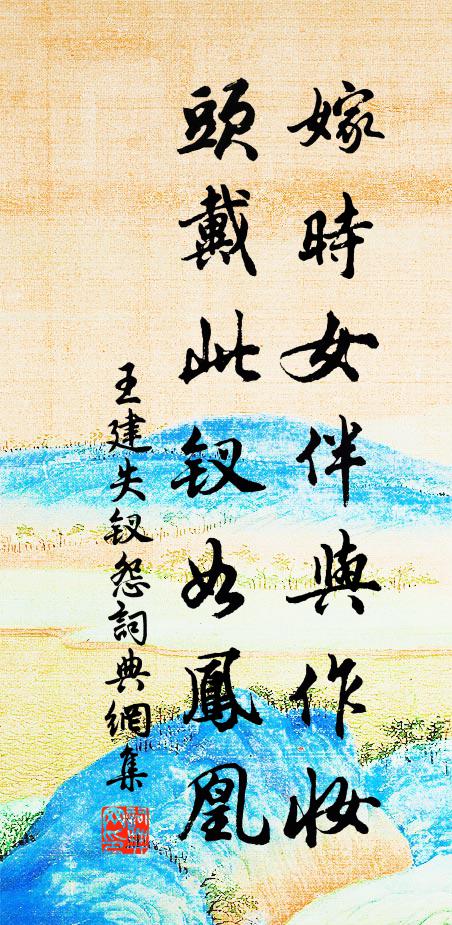 嫁時女伴與作妝
頭戴此釵如鳳凰
王建失釵怨詞典網集